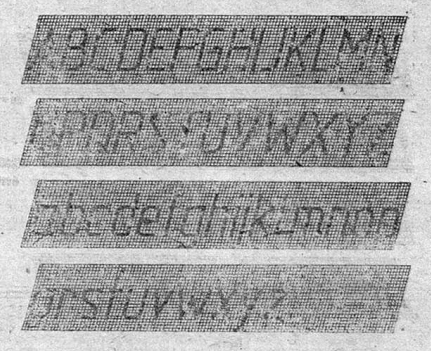 ABCDEFGHIJKLMN
OPQRSTUVWXYZ
abcdefghijklmnop
qrstuvwxyz